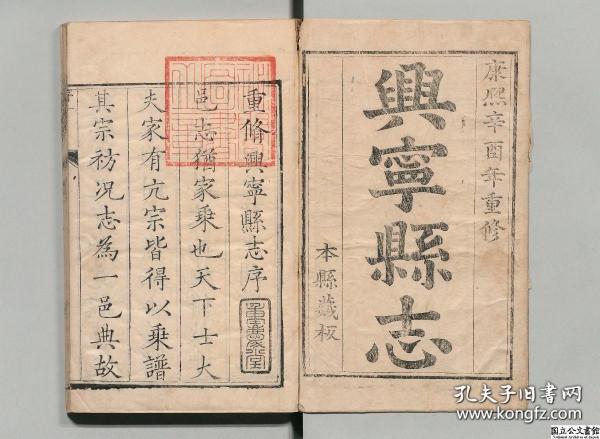 康熙辛酉年重修
興寧縣志
本縣藏板
重脩興寧縣志序
邑志猶家乘也天下士大
夫家有亢宗皆得以乘譜
其宗祊况志為一邑典故
孔夫子旧书网
www.kongfz.com
国立公文書館
National Archives of Japan